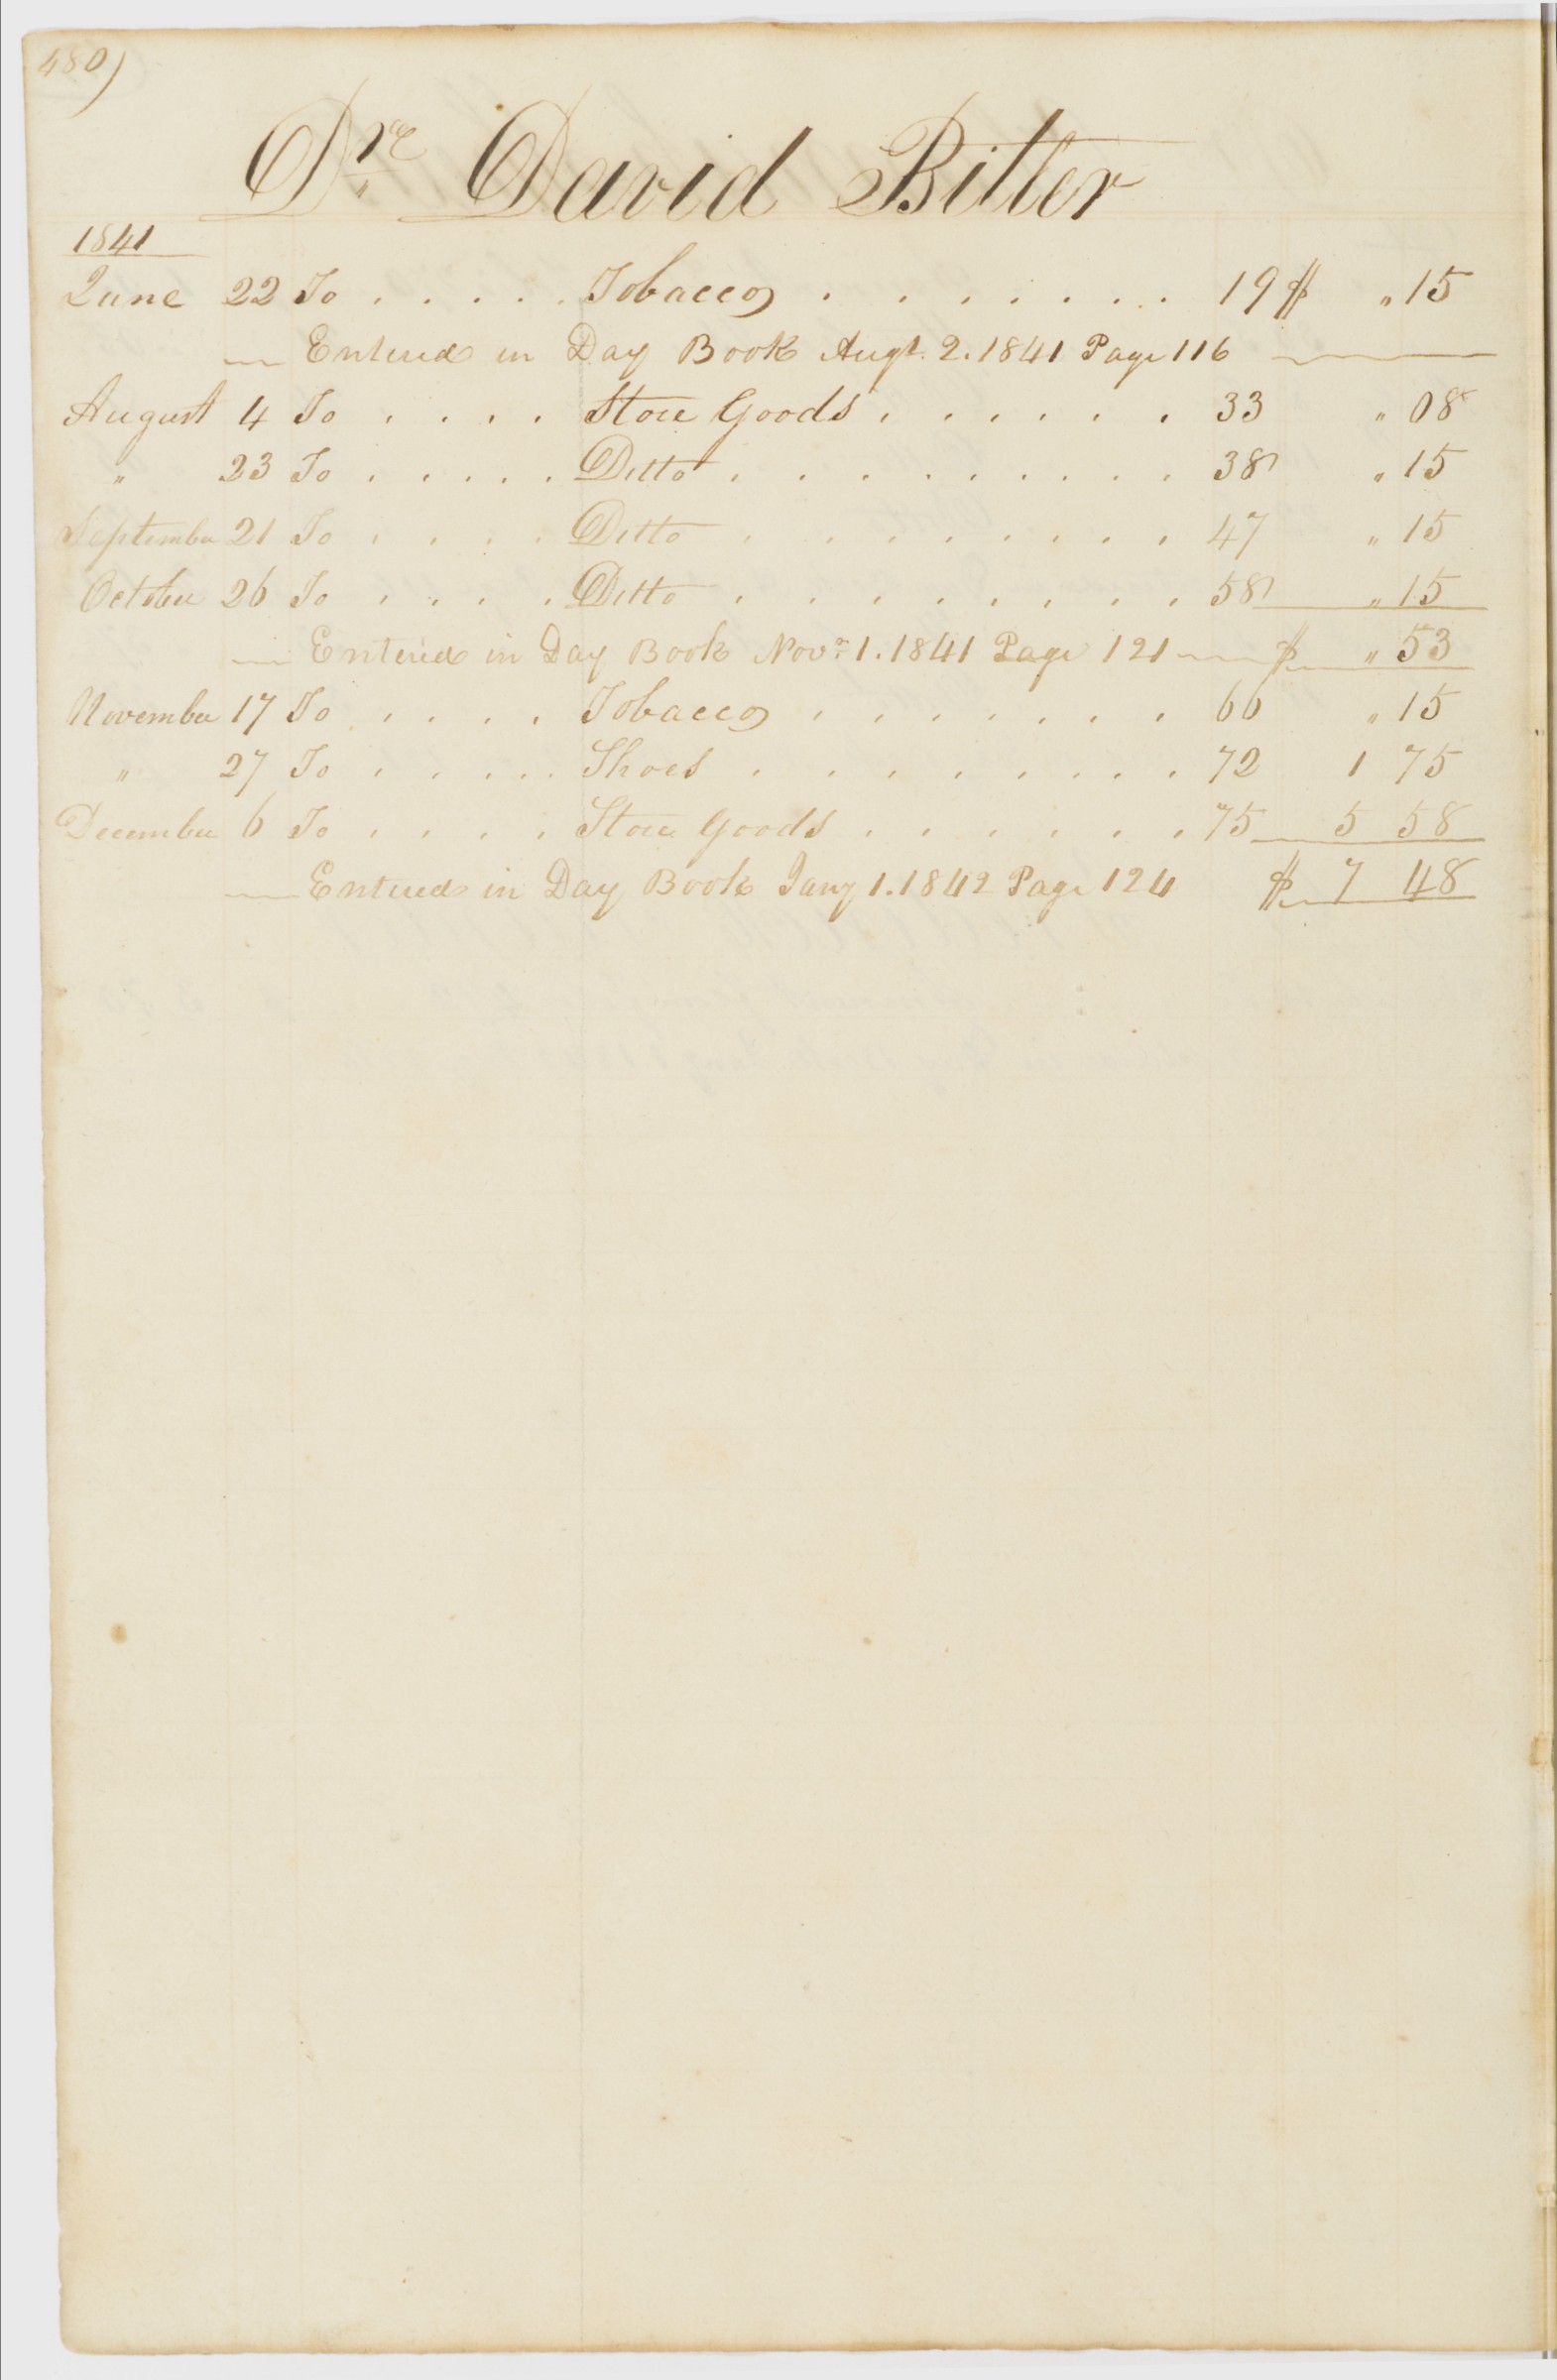 480)
Dr. David Bitler
1841
June 22 To . . . . . Tobacco . . . . . . . 19 $ " 15
— Entered in Day Book Augt. 2. 1841 Page 116 —
August 4 To . . . . Store Goods . . . . . . 33 " 08
" 23 To . . . . . Ditto . . . . . . . . 38 " 15
September 21 To . . . . Ditto . . . . . . . . 47 " 15
October 26 To . . . . Ditto . . . . . . . . 58 " 15
— Entered in Day Book Novr. 1. 1841 Page 121 — $ " 53
November 17 To . . . . Tobacco . . . . . . . 66 " 15
" 27 To . . . . . Shoes . . . . . . . . 72 1 75
December 6 To . . . . Store Goods . . . . . . 75 5 58
— Entered in Day Book Jany 1. 1842 Page 124 $ 7 48